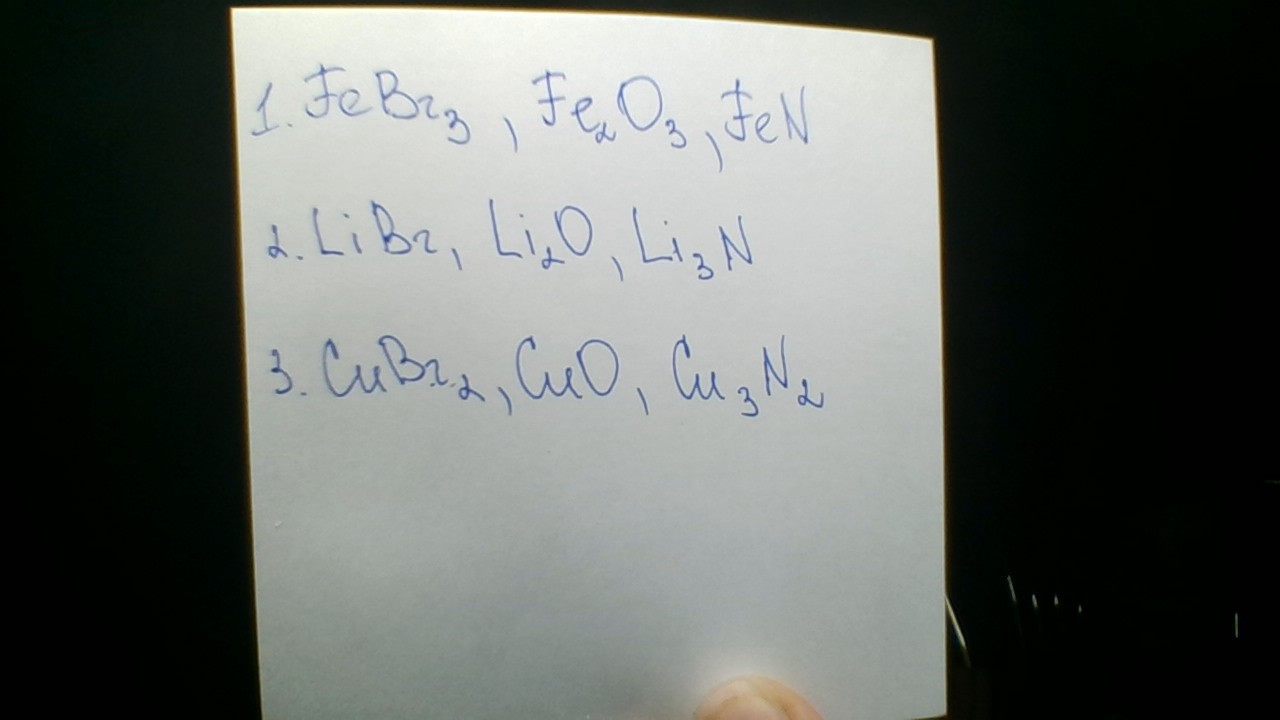 1. FeBr₃, Fe₂O₃, FeN
2. LiBr, Li₂O, Li₃N
3. CuBr₂, CuO, Cu₃N₂